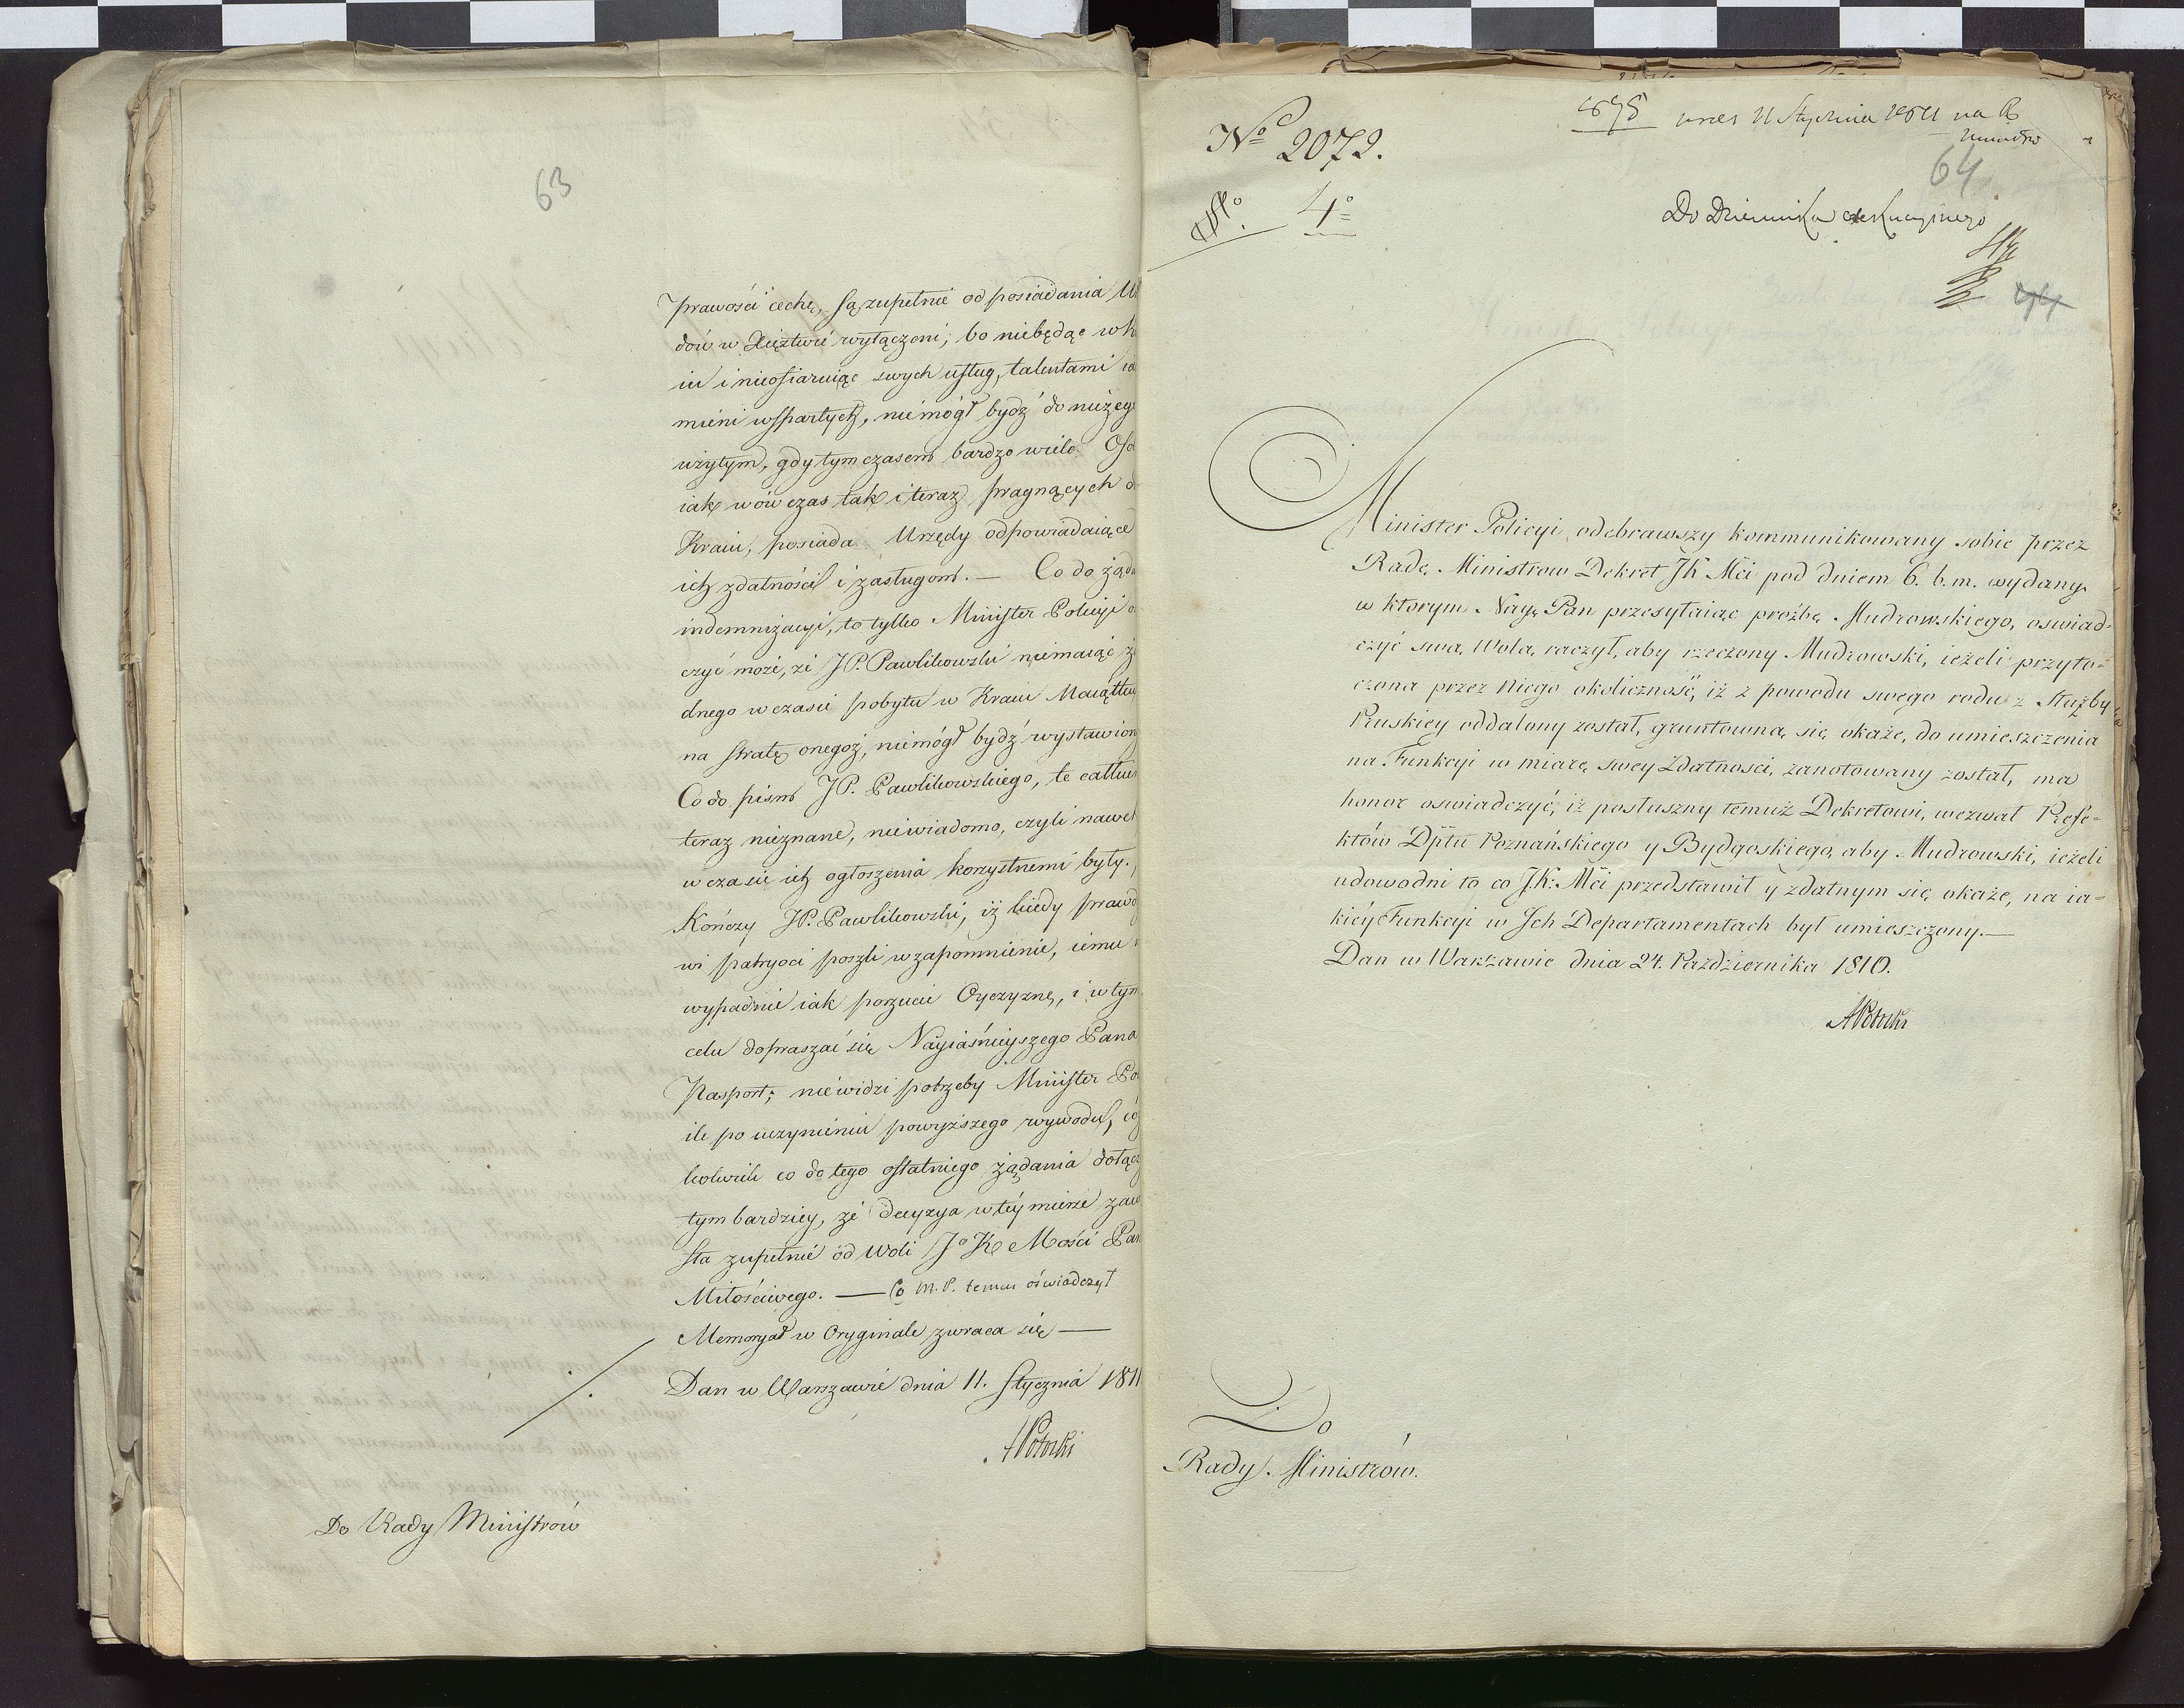 63
prawości cechę, są zupełnie od posiadania U
dów w Xięztwie wyłączeni; bo niebędąc w K
iu i nieofiaruiąc swych usług, talentami i
mieni wspartych, niemógł bydź do niczego
użytym, gdy tymczasem bardzo wiele Osó
iak wówczas tak i teraz, pragnących d
Kraiu, posiada Urzędy odpowiadaiące
ich zdatności i zasługom. — Co do żąda
indemnizacyi, to tylko Minister Policyi o
czyć może, że JP. Pawlikowski niemaiąc ża
dnego w czasie pobytu w Kraiu Maiątku
na stratę onegoż, niemógł bydź wystawiony
Co do pism JP. Pawlikowskiego, te całkiem
teraz nieznane, niewiadomo, czyli nawet
w czasie ich ogłoszenia korzystnemi były.
Kończy JP. Pawlikowski, iż kiedy prawd
wi patryoci poszli w zapomnienie, iemu
wypadnie iak porzucić Oyczyznę, i w tym
celu dopraszać się Nayiaśnieyszego Pana
Pasport; niewidzi potrzeby Minister Po
ile po uczynieniu powyższego wywodu, co
kolwiek co do tego ostatniego żądania dołącz
tym bardziey, że decyzya w téy mierze zawi
sła zupełnie od Woli Jo K Mości Pan
Miłościwego. — Co M. P. temu oświadczył
Memoryał w Oryginale zwraca się —
Dan w Warszawie dnia 11. Stycznia 1811
APotocki
Do Rady Ministrów
No 2072.
4o
11 Stycznia 1811 na R
Ministrów
64
Do Dziennika exekucyinego
Minister Policyi odebrawszy kommunikowany sobie przez
Radę Ministrow Dekret JK Mci pod dniem 6. b. m. wydany
w ktorym Nayę Pan przesyłaiąc proźbę Mudrowskiego, oswiad-
czyć swą Wolą raczył, aby rzeczony Mudrowski, ieżeli przyto-
czona przez niego okoliczność, iż z powodu swego rodu z Służby
Pruskiey oddalony został, gruntowną się okaże, do umieszczenia
na Funkcyi w miarę swey Zdatności, zanotowany został, ma
honor oswiadczyć, iż posłuszny temuż Dekretowi, wezwał Prefe-
któw Dptu Poznańskiego y Bydgoskiego, aby Mudrowski, ieżeli
udowodni to co J.K: Mci przedstawił y zdatnym się okaże, na ia-
kiéy Funkcyi w Jch Departamentach był umieszczony.—
Dan w Warszawie dnia 24. Października 1810.
APotocki
Do
Rady Ministrów.